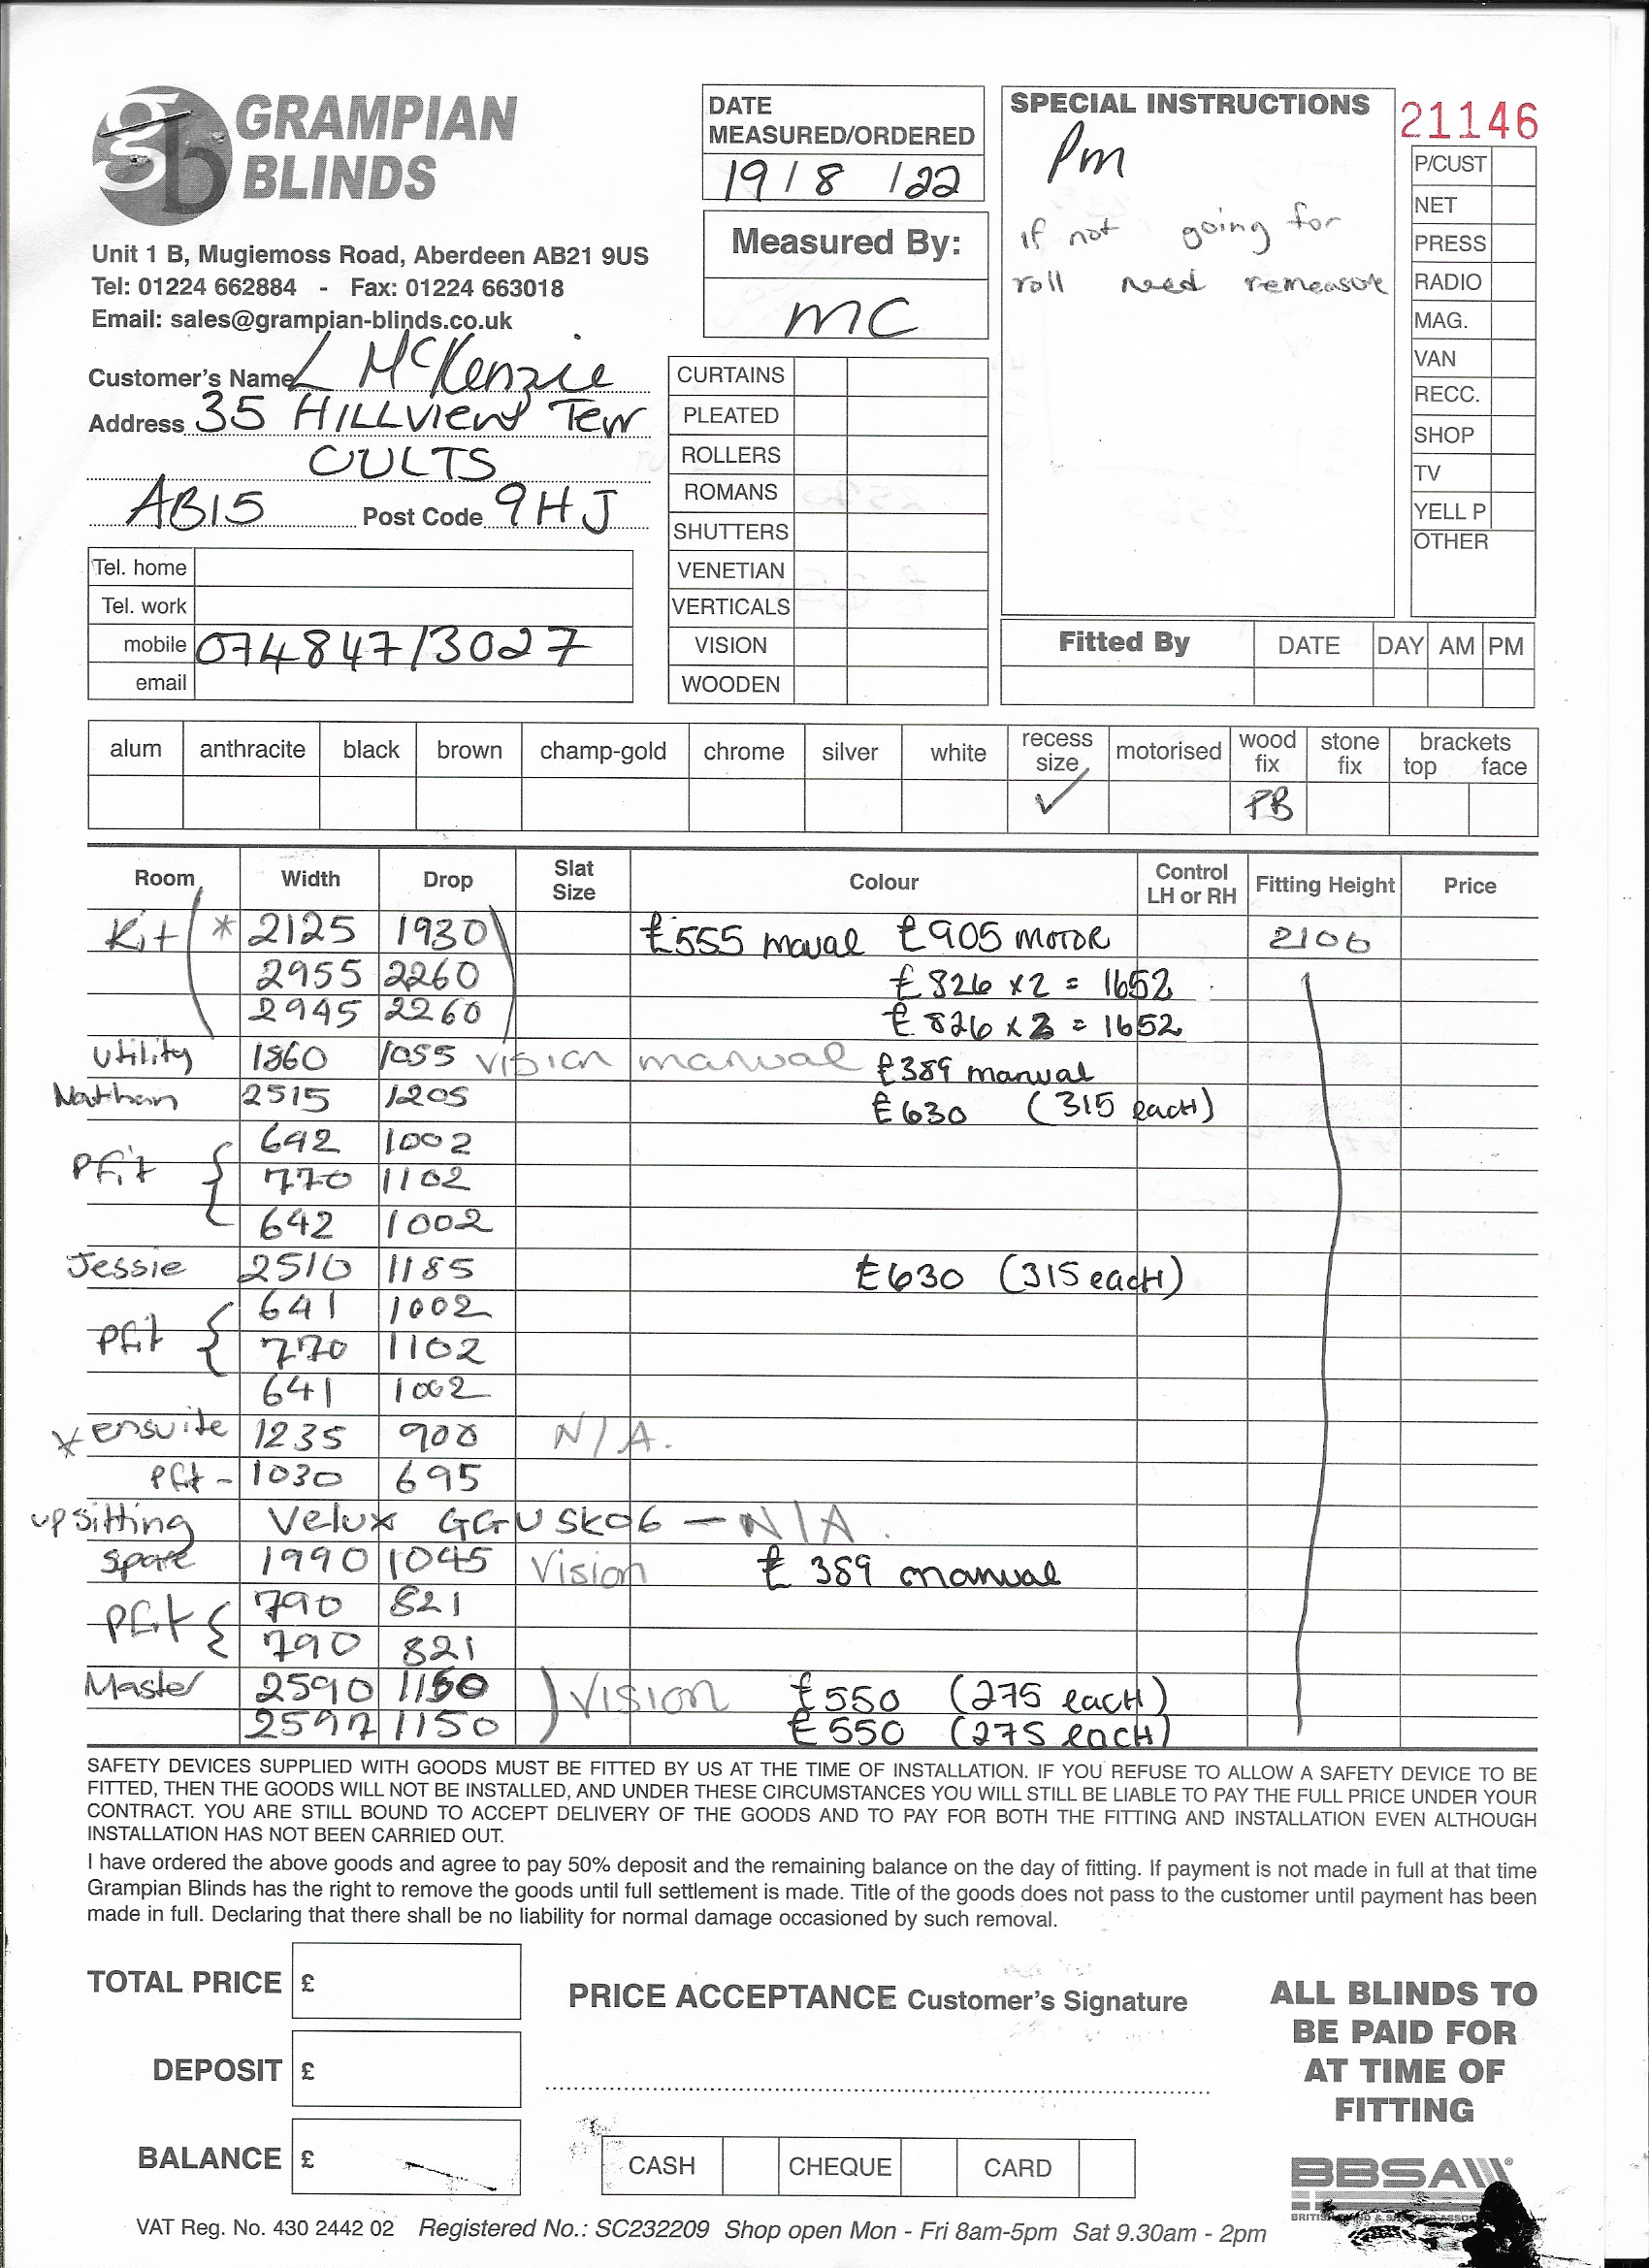 GRAMPIAN
BLINDS
Unit 1 B, Mugiemoss Road, Aberdeen AB21 9US
Tel: 01224 662884 - Fax: 01224 663018
Email: sales@grampian-blinds.co.uk
Customer's Name L McKenzie
Address 35 HILLView Terr
CULTS
AB15 Post Code 9HJ
Tel. home
Tel. work
mobile 07484713027
email
DATE
MEASURED/ORDERED
19/8/22
Measured By:
MC
CURTAINS
PLEATED
ROLLERS
ROMANS
SHUTTERS
VENETIAN
VERTICALS
VISION
WOODEN
SPECIAL INSTRUCTIONS
Pm
if not going for
roll need remeasure
21146
P/CUST
NET
PRESS
RADIO
MAG.
VAN
RECC.
SHOP
TV
YELL P
OTHER
Fitted By DATE DAY AM PM
alum anthracite black brown champ-gold chrome silver white recess size motorised wood fix stone fix brackets top face
✓ PB
Room Width Drop Slat Size Colour Control LH or RH Fitting Height Price
Kit * 2125 1930 £555 maual £905 MOTOR 2100
2955 2260 £826 x2 = 1652
2945 2260 £826 x 2 = 1652
Utility 1860 1055 vision manual £389 manual
Nathan 2515 1205 £630 (315 each)
642 1002
Pfit { 770 1102
642 1002
Jessie 2510 1185 £630 (315 each)
641 1002
Pfit { 770 1102
641 1002
* ensuite 1235 900 N/A.
Pfit - 1030 695
up sitting Velux GGU SK06 - N/A.
Spare 1990 1045 Vision £389 manual
Pfit { 790 821
790 821
Master 2590 1150 ) Vision £550 (275 each)
2597 1150 £550 (275 each)
SAFETY DEVICES SUPPLIED WITH GOODS MUST BE FITTED BY US AT THE TIME OF INSTALLATION. IF YOU REFUSE TO ALLOW A SAFETY DEVICE TO BE
FITTED, THEN THE GOODS WILL NOT BE INSTALLED, AND UNDER THESE CIRCUMSTANCES YOU WILL STILL BE LIABLE TO PAY THE FULL PRICE UNDER YOUR
CONTRACT. YOU ARE STILL BOUND TO ACCEPT DELIVERY OF THE GOODS AND TO PAY FOR BOTH THE FITTING AND INSTALLATION EVEN ALTHOUGH
INSTALLATION HAS NOT BEEN CARRIED OUT.
I have ordered the above goods and agree to pay 50% deposit and the remaining balance on the day of fitting. If payment is not made in full at that time
Grampian Blinds has the right to remove the goods until full settlement is made. Title of the goods does not pass to the customer until payment has been
made in full. Declaring that there shall be no liability for normal damage occasioned by such removal.
TOTAL PRICE £
DEPOSIT £
BALANCE £
PRICE ACCEPTANCE Customer's Signature
CASH CHEQUE CARD
ALL BLINDS TO
BE PAID FOR
AT TIME OF
FITTING
BBSA
VAT Reg. No. 430 2442 02 Registered No.: SC232209 Shop open Mon - Fri 8am-5pm Sat 9.30am - 2pm